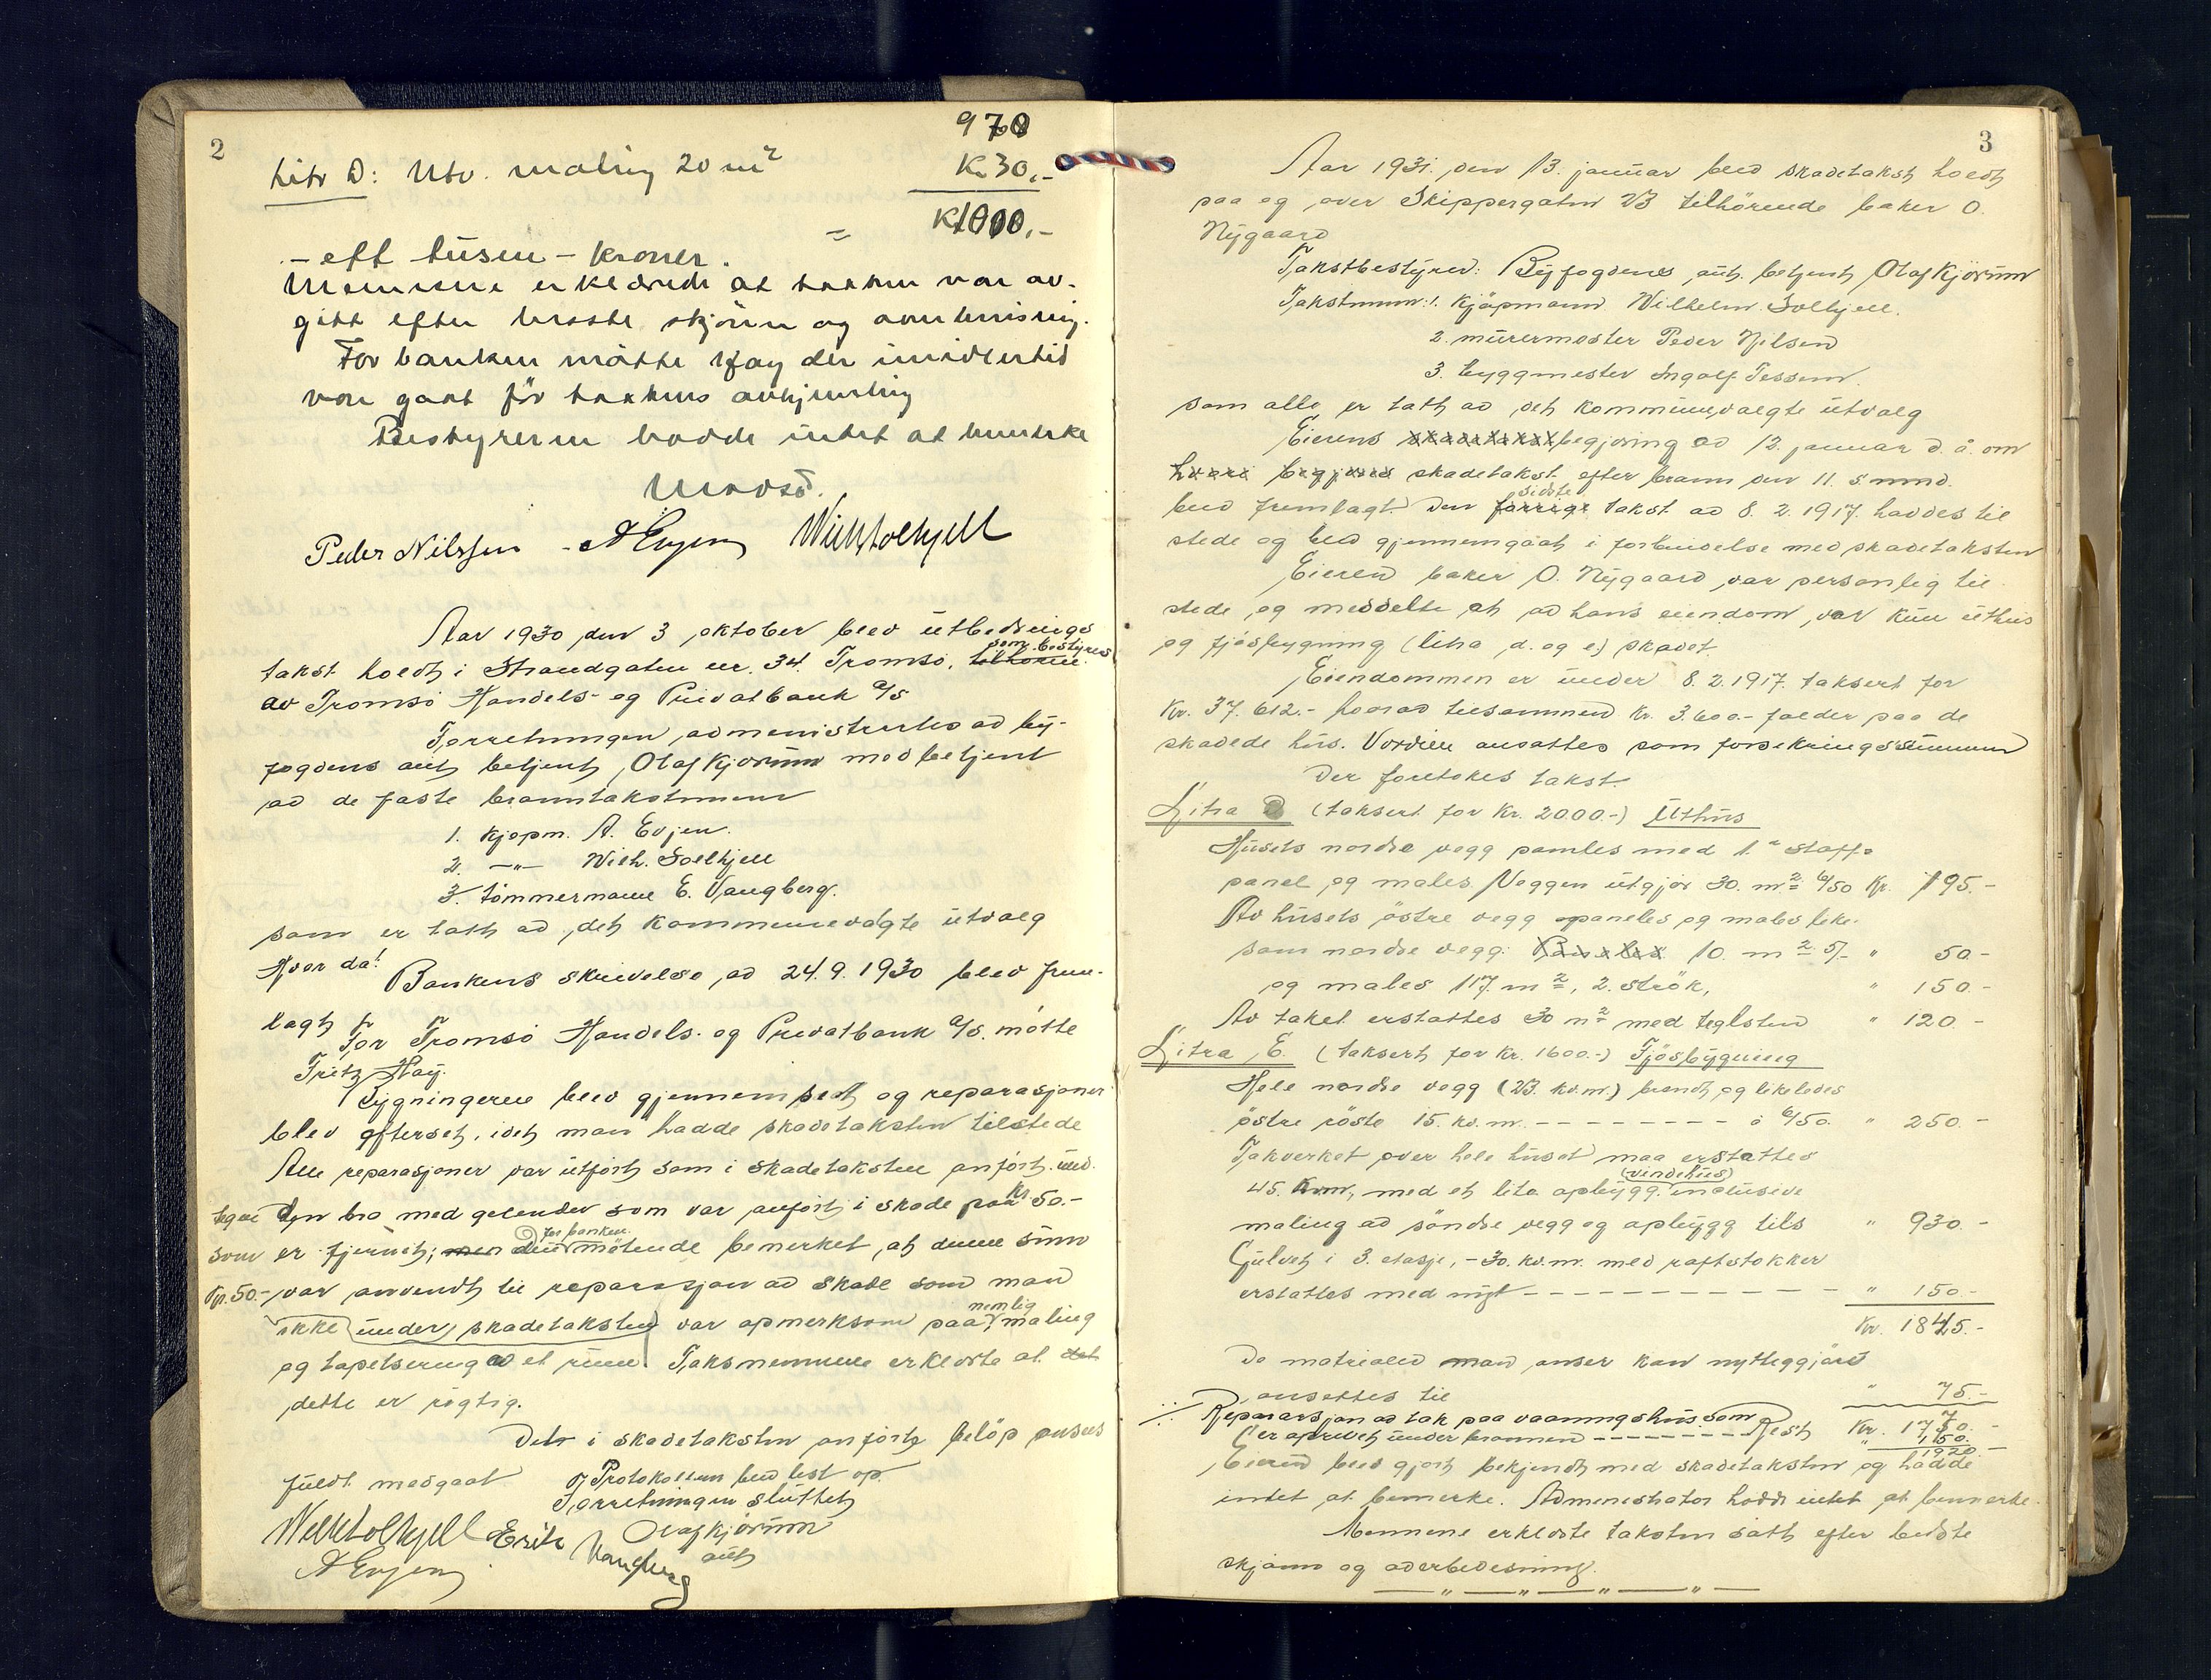 2
970
Litr D: Utv. maling 20 m²
K. 30,-
= K 1000,-
- ett tusen - kroner.
Mennene erklærede at taksten var av-
gitt efter beste skjønn og overbevisning.
For banken møtte der imidlertid
var gaat før takstens avhjemling
Bestyreren hadde intet at bemerke
Peder Nilssen A Evjen Wilh Solhjell
Aar 1930 den 3 oktober blev utbedrings
takst holdt i Strandgaten nr. 34 Tromsø, tilhøren. som bestyres
av Tromsø Handels- og Privatbank A/S
Forretningen administrertes av by-
fogdens aut. betjent, Olaf Kjørum med betjent
av de faste branntakstmenn
1. Kjøpm. A. Evjen.
2. -"- Wilh. Solhjell
3. tømmermann E. Vangberg.
som er tatt av det kommunevalgte utvalg
Hvorda:
Bankens skrivelse av 24.9.1930 blev frem-
lagt
For Tromsø Handels- og Privatbank A/S. møtte
Fritz Hay.
Bygningene blev gjennemsett og reparasjoner
blev efterset, idet man hadde skadetaksten tilstede
Alle reparasjoner var utført som i skadetaksten anført. und-
tagen bro med gelender som var anført i skade paa kr 50.-
som er fjernet; men den for banken møtende bemerket, at denne sum
Kr. 50.- var anvendt til reparasjon av skade som man
ikke under skadetaksten var opmerksom paa, nemlig maling
og tapetsering av et rum. Taksmennene erklærte at det
dette er rigtig.
Det i skadetaksten anførte beløp ansees
fuldt medgaat
Protokollen blev lest op.
Forretningen sluttet
Wilh Solhjell Erik Vangberg Olaf Kjørum
A Evjen aut
3
Aar 1931. den 13. januar blev skadetakst holdt
paa og over Skippergaten 23 tilhørende baker O.
Nygaard
Takstbestyrer: Byfogdens aut. betjent Olaf Kjørum
Takstmenn: 1. Kjøpmann Wilhelm Solhjell.
2. murermester Peder Nilsen
3. byggmester Ingolf Tessem.
som alle er tatt av det kommunevalgte utvalg
Eierens skadetakst begjæring av 12. januar d. å. om
hvori begjæres skadetakst efter brann den 11. s. mnd.
blev fremlagt. Den forrige sidste takst av 8. 2. 1917. haddes til
stede og blev gjennemgaat i forbindelse med skadetaksten
Eieren baker O. Nygaard var personlig til
stede og meddelte at av hans eiendom, var kun uthus
og fjøsbygning (litra d. og e) skadet.
Eiendommen er under 8. 2. 1917. taksert for
Kr. 37.612.- hvorav tilsammen kr. 3.600.- falder paa de
skadede hus. Verdien ansattes som forsikringssummen
Der foretokes takst.
Litra D (taksert for Kr. 2000.-) Uthus
Husets nordre vegg pamles med 1." staff-
panel og males. Veggen utgjør 30. m² 6/50 Kr. 195.-
Av husets østre vegg paneles og males like-
som nordre vegg: Paneles 10. m² 5/- " 50.-
og males 117. m², 2. strøk, " 150.-
Av taket erstattes 30 m² med teglsten " 120.-
Litra E. (taksert for Kr. 1600.-) Fjøsbygning
Hele nordre vegg (23. kv.m.) brendt og likeledes
østre røste 15. kv.m. - - - - - - - - à 6/50. " 250.-
Takverket over hele huset maa erstattes
45. kvm, med et lite opbygg. (vindehus) inclusive
maling av søndre vegg og opbygg tils " 930.-
Gulvet i 3. etasje, - 30. kv.m. med raftstokker
erstattes med nyt - - - - - - - - - - - " 150.-
Kr. 1845.-
De matrialer man anser kan nyttiggjøres
ansettes til " 75.-
Rest Kr. 1770.-
Reparasjon av tak paa vaaningshus som
er oprevet under brannen - - - - - - - " 150.
1920.-
Eieren blev gjort bekjendt med skadetaksten og hadde
intet at bemerke. Administrator hadde intet at bemerke.
Mennene erklærte taksten satt efter bedste
skjønn og overbevisning.
— " — " — " — " —